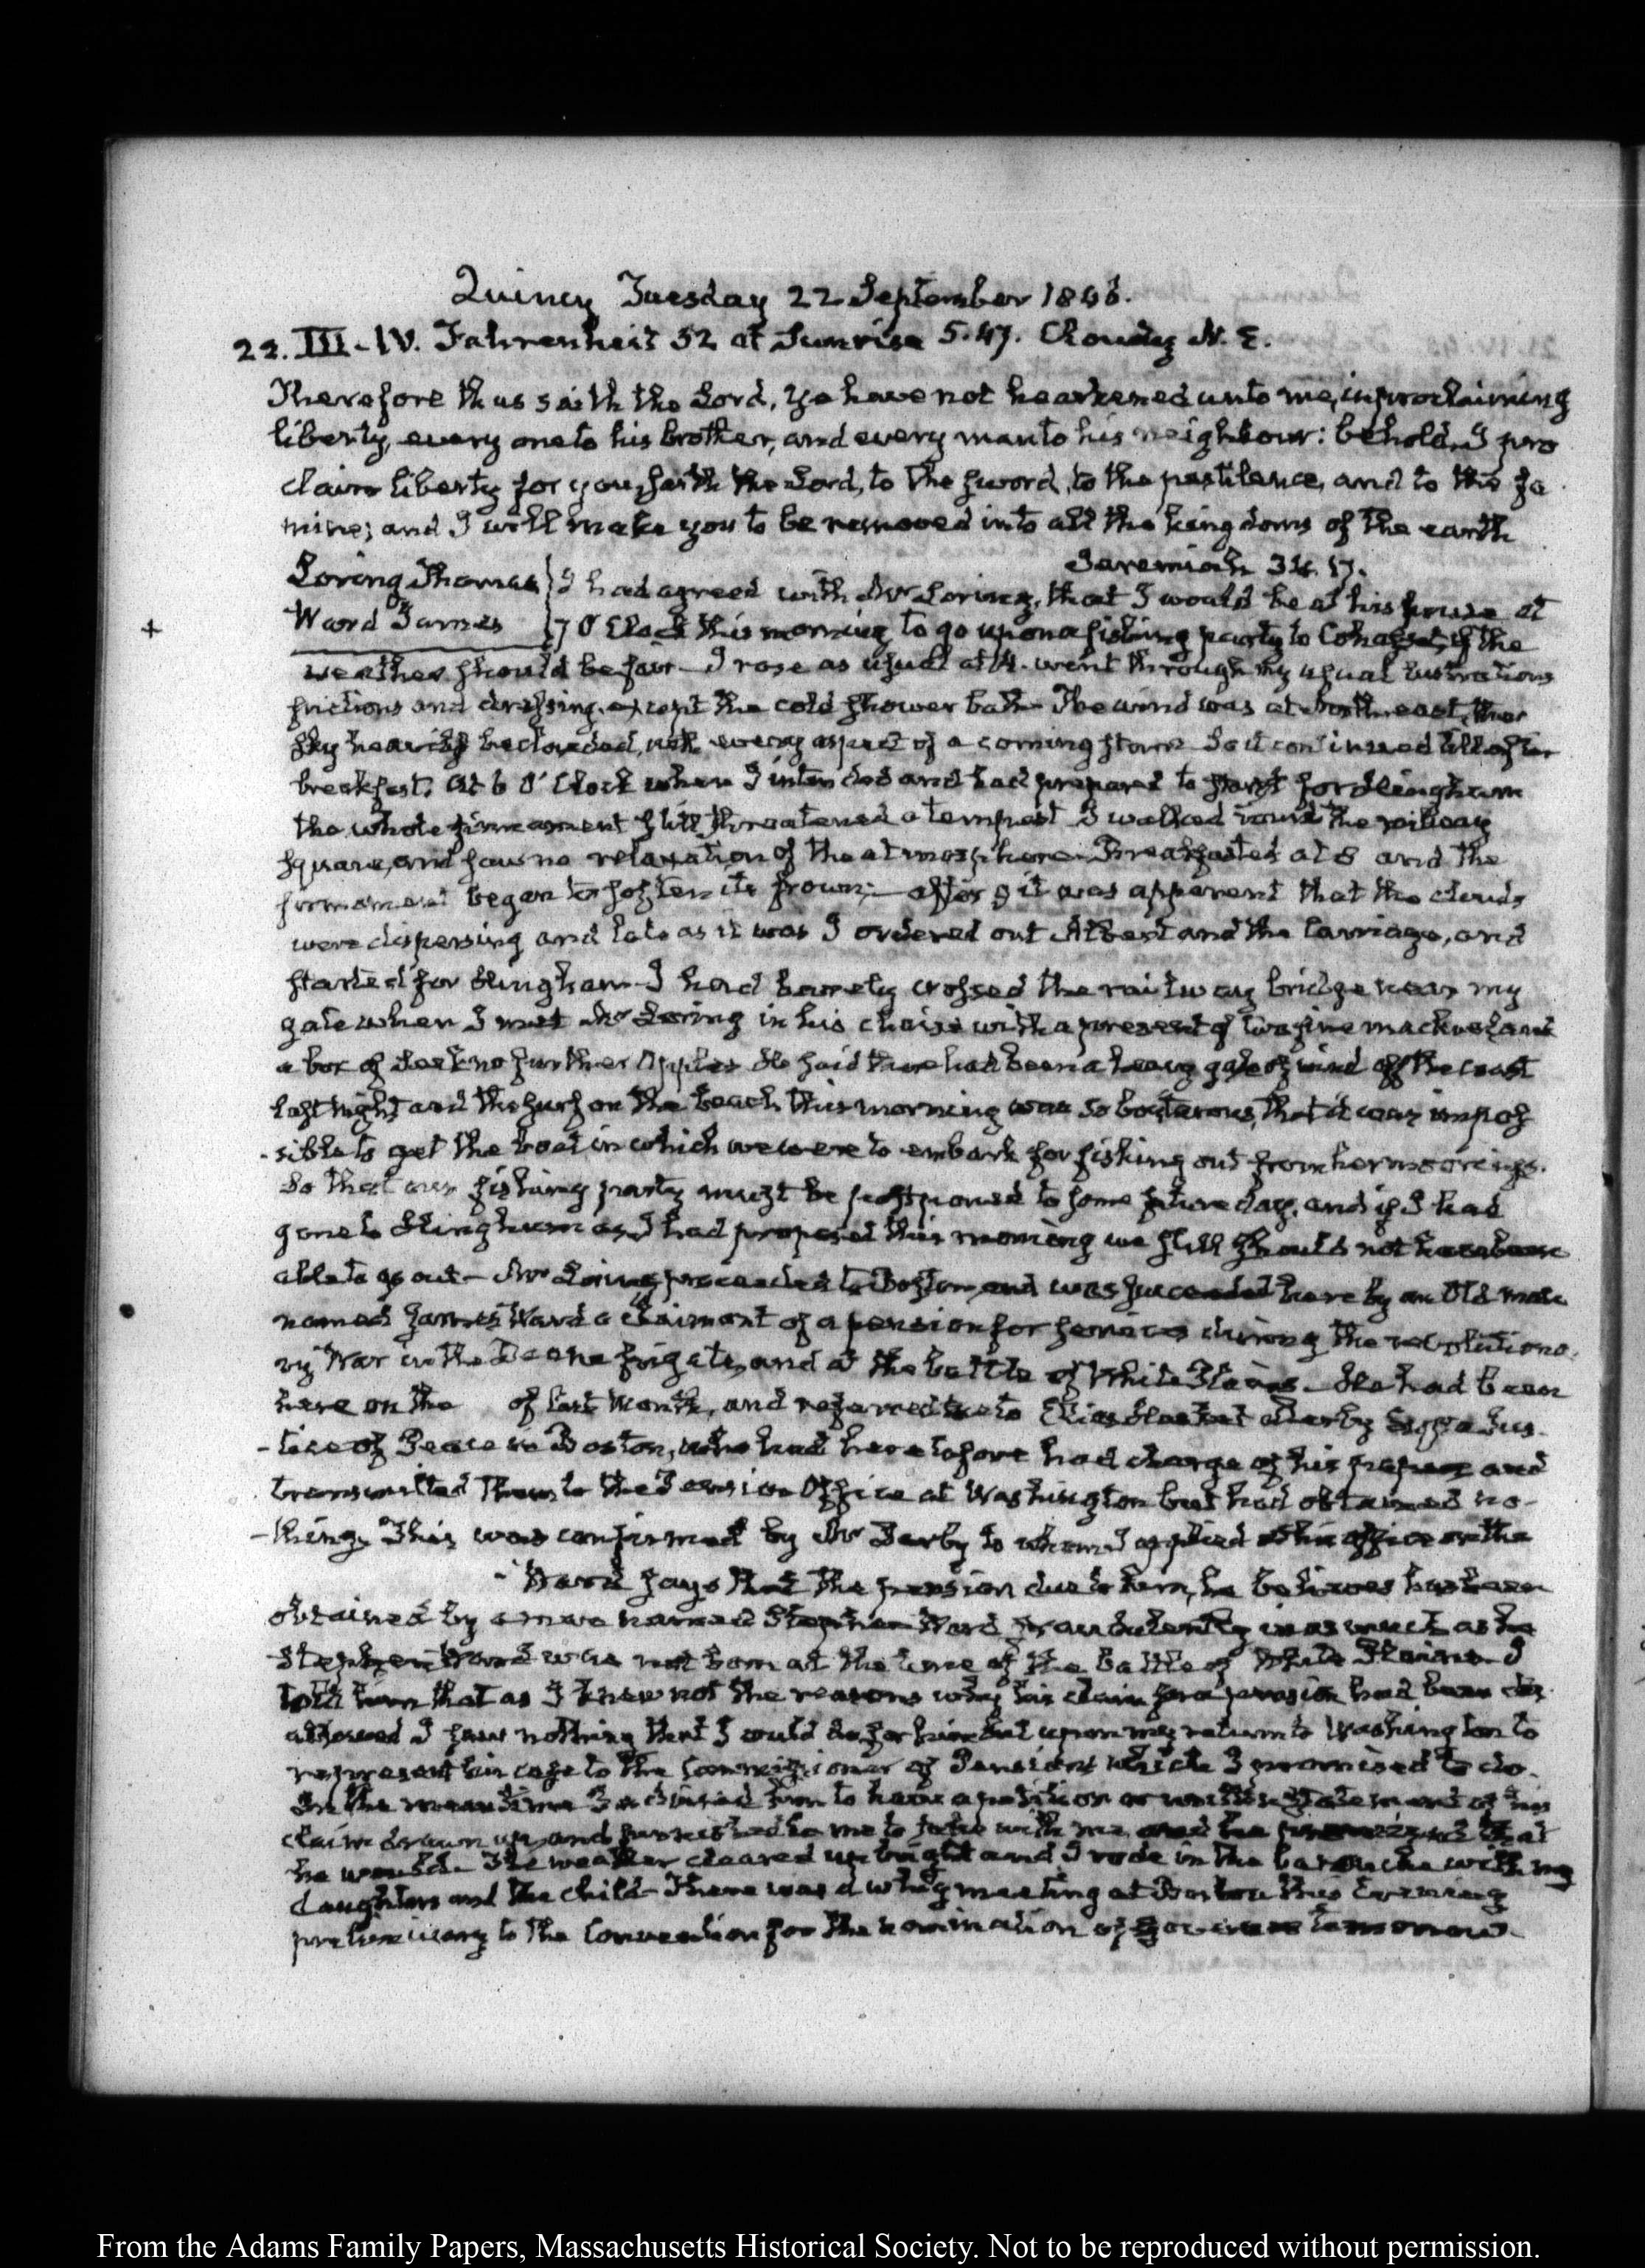 Quincy Tuesday 22 September 1846.
22. III-IV. Fahrenheit 52 at Sunrise 5.47. Cloudy N. E.
Therefore thus saith the Lord, Ye have not hearkened unto me, in proclaiming
liberty, every one to his brother, and every man to his neighbour: behold, I pro
claim liberty for you, saith the Lord, to the sword, to the pestilence, and to the fa
mine; and I will make you to be removed into all the kingdoms of the earth
Jeremiah 34.17.
Loring Thomas
Ward James
I had agreed with Mr Loring, that I would be at his house at
7 O'Clock this morning to go upon a fishing party to Cohasset, if the
weather should be fair- I rose as usual at 4. went through my usual lustrations
frictions and dressing, except the cold shower bath- The wind was at North east, the
sky heavily beclouded, with every aspect of a coming storm- So it continued till after
breakfast. At 6 O'Clock when I intended and had prepared to start for Hingham
the whole firmament still threatened a tempest I walked round the railway
square, and saw no relaxation of the atmosphere. Breakfasted at 8 and the
firmament began to soften its frown;- after 9 it was apparent that the clouds
were dispersing and late as it was I ordered out Albert and the Carriage, and
started for Hingham- I had barely crossed the railway bridge near my
gate when I met Mr Loring in his chaise with a present of two fine mackerel and
a box of seek no further Apples He said there had been a heavy gale of wind off the coast
last night and the surf on the beach this morning was so boisterous, that it was impos
-sible to get the boat in which we were to embark for fishing out from her moorings.
So that our fishing party must be postponed to some future day, and if I had
gone to Hingham as I had proposed this morning we still should not have been
able to go out- Mr Loring proceeded to Boston, and was succeeded here by an Old man
named James Ward a Claimant of a pension for services during the revolutiona-
ry War in the Deane frigate, and at the battle of White Plains- He had been
here on the of last Month, and referred me to Elias Hasket Derby Esqr a Jus-
-tice of Peace in Boston, who had heretofore had charge of his papers and
transmitted them to the Pension Office at Washington but had obtained no-
-thing. This was confirmed by Mr Derby to whom I applied at his office on the
- Ward says that the pension due to him, he believes has been
obtained by a man named Stephen Ward fraudulently in as much as
Stephen Ward was not born at the time of the battle of White Plains- I
told him that as I knew not the reasons why his claim for a pension had been dis
allowed I saw nothing that I could do for him but upon my return to Washington to
represent his case to the Commissioner of Pensions which I promised to do.
In the mean time I advised him to have a petition or written Statement of his
claim drawn up and furnished to me to take with me and he that
he would- The weather cleared up bright and I rode in the barouche with my
daughters and the child- There was a whig meeting at Boston this Evening
preliminary to the Convention for the nomination of Governor tomorrow.
From the Adams Family Papers, Massachusetts Historical Society. Not to be reproduced without permission.